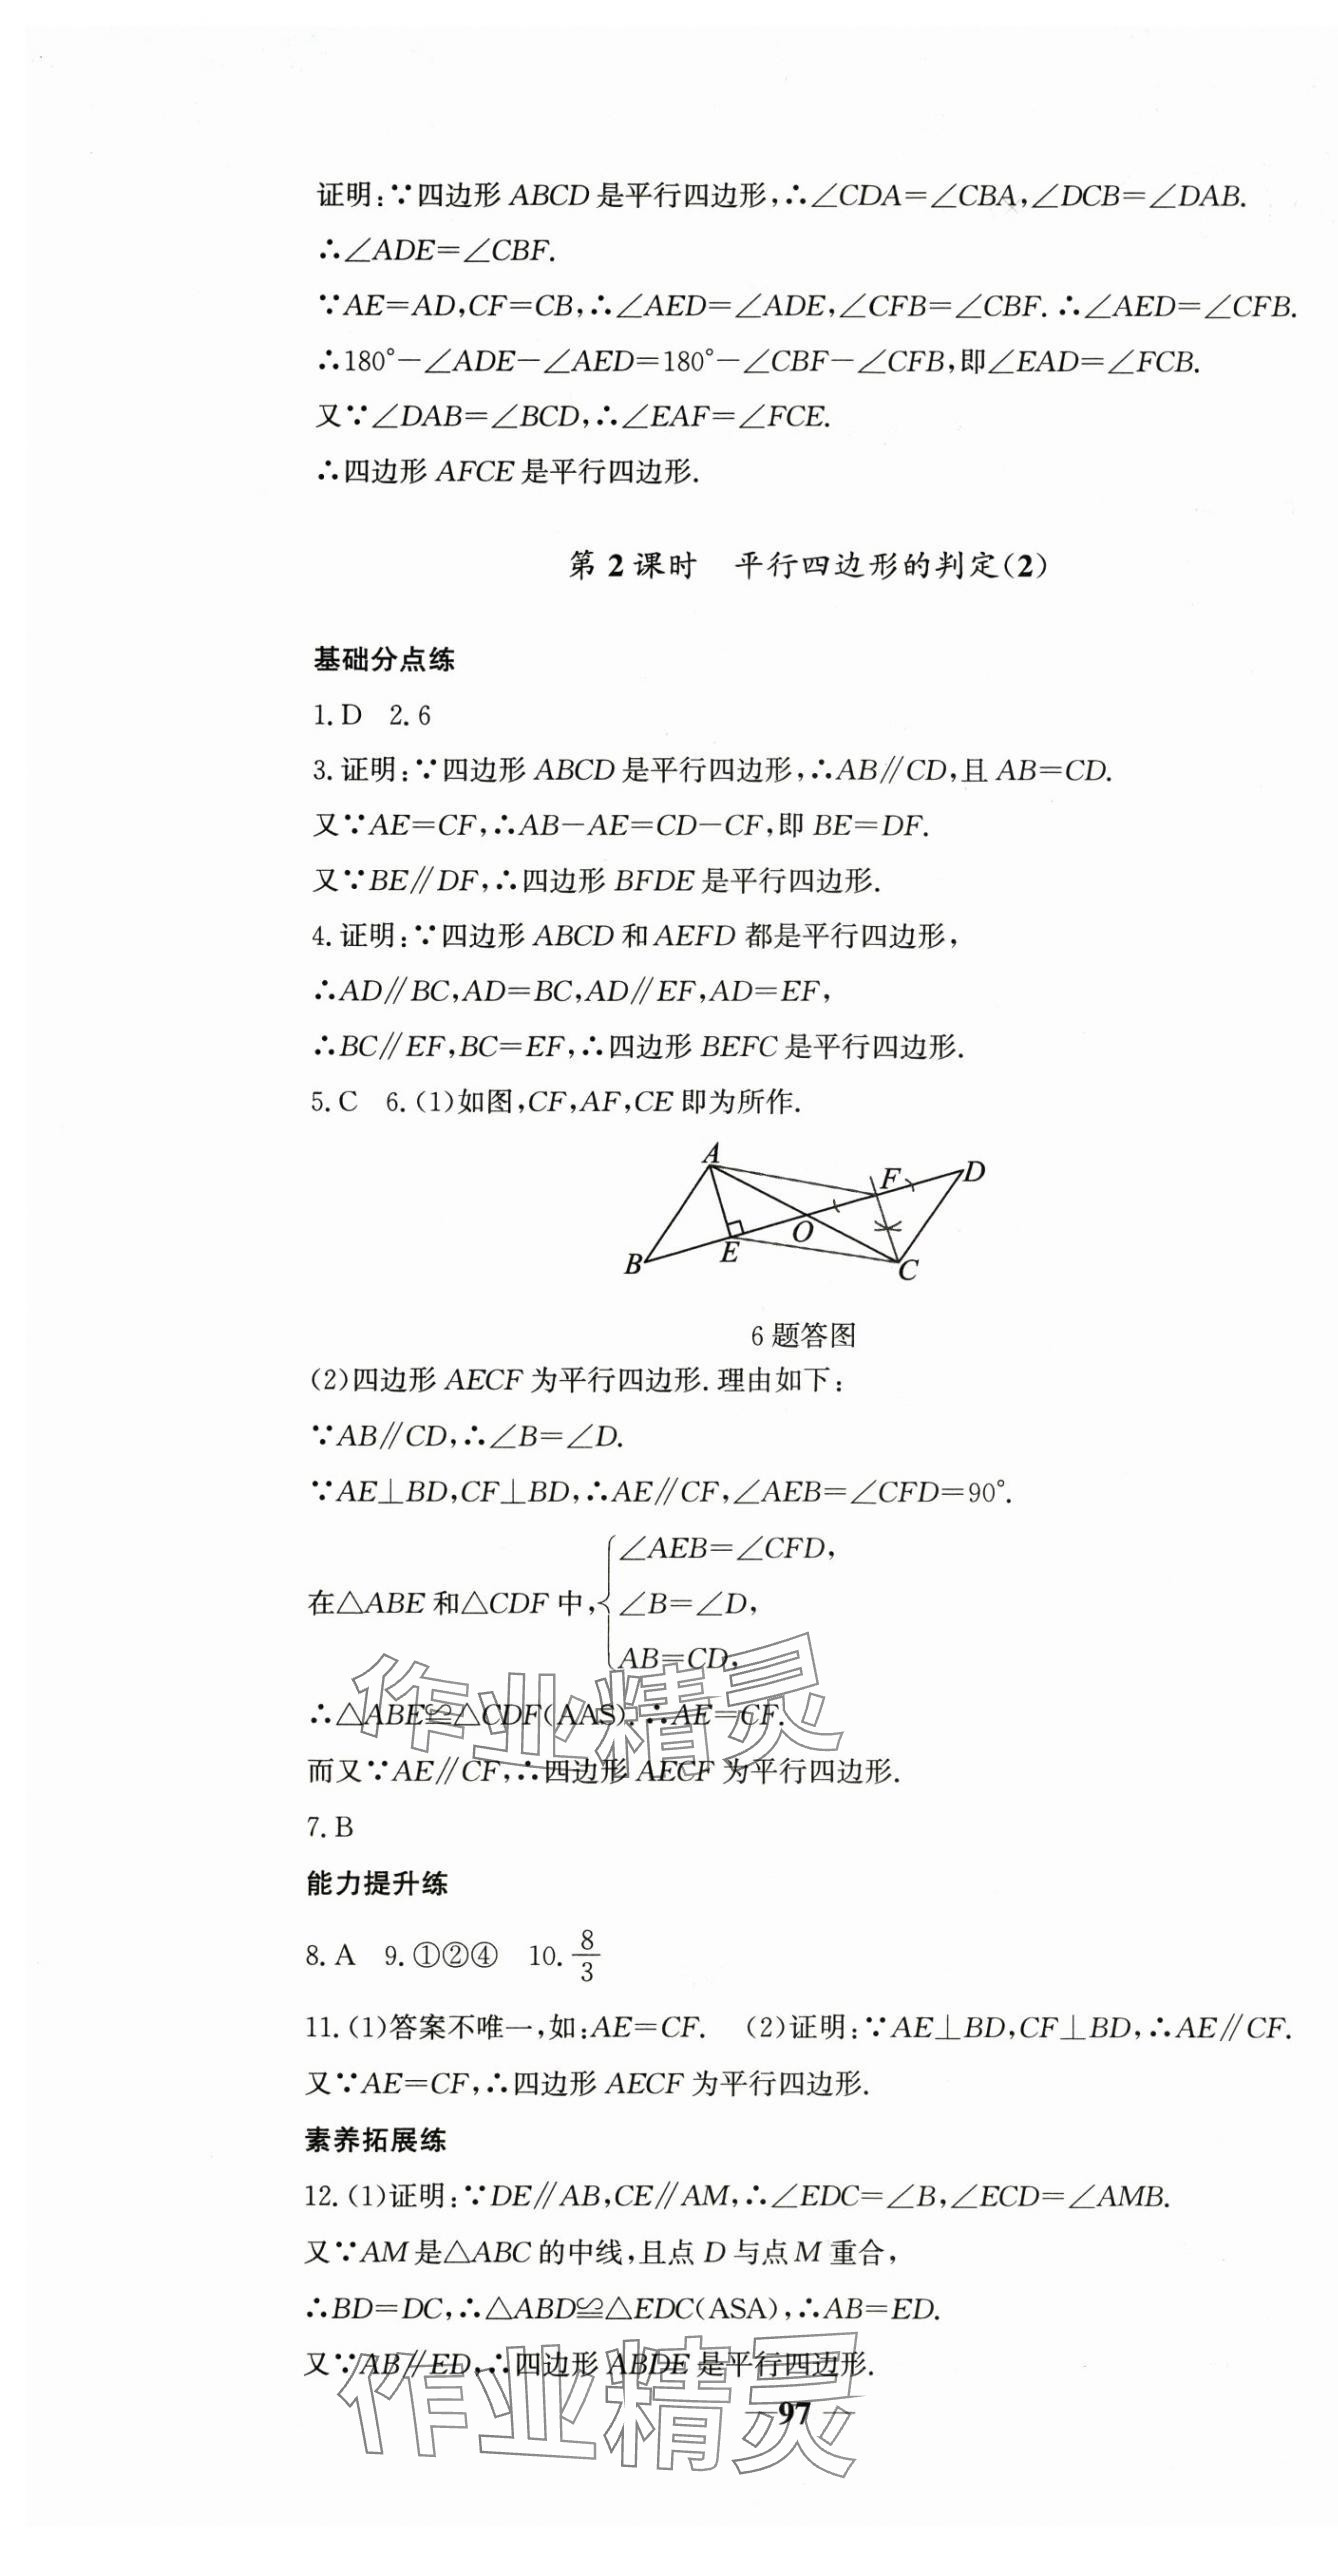 证明:∵四边形 ABCD 是平行四边形,∴∠CDA=∠CBA,∠DCB=∠DAB.
∴∠ADE=∠CBF.
∵AE=AD,CF=CB,∴∠AED=∠ADE,∠CFB=∠CBF.∴∠AED=∠CFB.
∴180°-∠ADE-∠AED=180°-∠CBF-∠CFB,即∠EAD=∠FCB.
又∵∠DAB=∠BCD,∴∠EAF=∠FCE.
∴四边形 AFCE 是平行四边形.
第 2 课时 平行四边形的判定(2)
基础分点练
1. D 2. 6
3. 证明:∵四边形 ABCD 是平行四边形,∴AB∥CD,且 AB=CD.
又∵AE=CF,∴AB-AE=CD-CF,即 BE=DF.
又∵BE∥DF,∴四边形 BFDE 是平行四边形.
4. 证明:∵四边形 ABCD 和 AEFD 都是平行四边形,
∴AD∥BC,AD=BC,AD∥EF,AD=EF,
∴BC∥EF,BC=EF,∴四边形 BEFC 是平行四边形.
5. C 6. (1)如图,CF,AF,CE 即为所作.
A
F
D
O
B
E
C
6 题答图
(2)四边形 AECF 为平行四边形. 理由如下:
∵AB∥CD,∴∠B=∠D.
∵AE⊥BD,CF⊥BD,∴AE∥CF,∠AEB=∠CFD=90°.
∠AEB=∠CFD,
在△ABE 和△CDF 中,{∠B=∠D,
AB=CD,
∴△ABE≌△CDF(AAS).∴AE=CF.
而又∵AE∥CF,∴四边形 AECF 为平行四边形.
7. B
能力提升练
8. A 9. ①②④ 10. 8/3
11. (1)答案不唯一,如:AE=CF. (2)证明:∵AE⊥BD,CF⊥BD,∴AE∥CF.
又∵AE=CF,∴四边形 AECF 为平行四边形.
素养拓展练
12. (1)证明:∵DE∥AB,CE∥AM,∴∠EDC=∠B,∠ECD=∠AMB.
又∵AM 是△ABC 的中线,且点 D 与点 M 重合,
∴BD=DC,∴△ABD≌△EDC(ASA),∴AB=ED.
又∵AB∥ED,∴四边形 ABDE 是平行四边形.
97
作业精灵
作业精灵